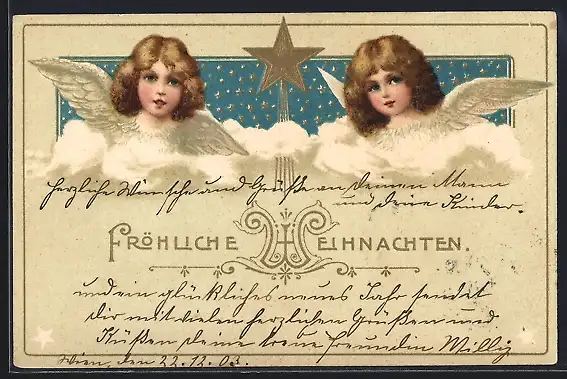 herzliche Wünsche und Grüße an deinen Mann
und deine Kinder.
FRÖHLICHE WEIHNACHTEN.
und ein glückliches neues Jahr sendet
dir mit vielen herzlichen Grüßen und
Küßen deine treue Freundin Willy
Wien, den 22.12.03.